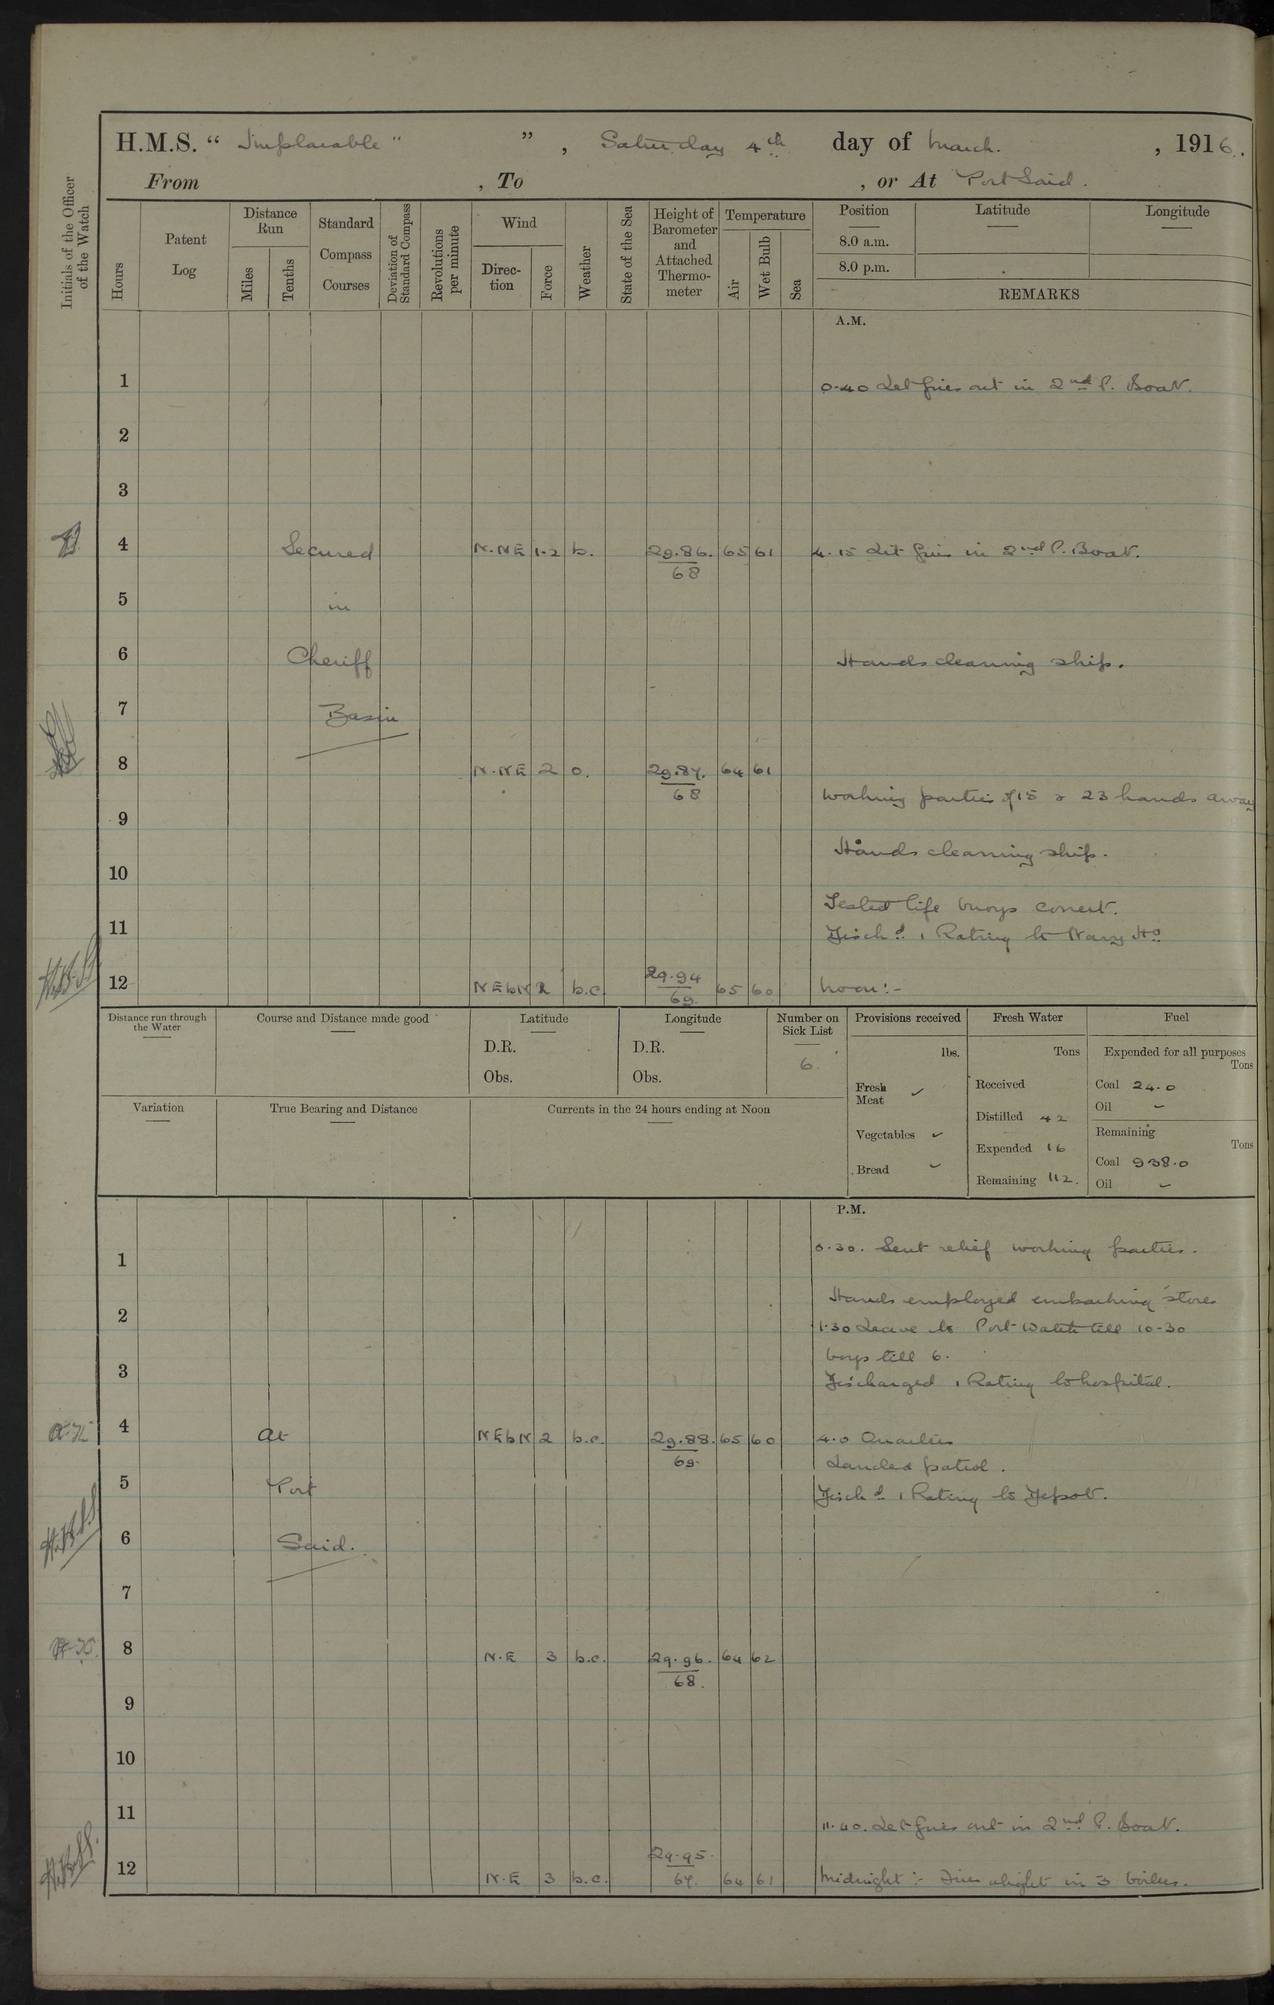 H.M.S. “ Implacable ” ” , Saturday 4th day of March. , 1916.
From , To , or At Port Said.
Initials of the Officer of the Watch
Hours
Patent Log
Distance Run
Miles
Tenths
Standard Compass Courses
Deviation of Standard Compass
Revolutions per minute
Wind
Direction
Force
Weather
State of the Sea
Height of Barometer and Attached Thermometer
Temperature
Air
Wet Bulb
Sea
Position Latitude Longitude
8.0 a.m.
8.0 p.m.
REMARKS
A.M.
1 0.40 Let fires out in 2nd P. Boat.
2
3
4 Secured N.NE 1-2 b. 29.86. 65 61 4.15 Lit fires in 2nd P. Boat.
68
5 in
6 Cheriff Hands cleaning ship.
7 Basin
8 N.NE 2 o. 29.87. 64 61
68
Working parties of 15 & 23 hands away
9
Hands cleaning ship.
10
Tested life buoys correct.
11 Disch'd. 1 Rating to Navy Ho
12 NEbN 2 b.c. 29.94 65 60 Noon:-
69
Distance run through the Water
Course and Distance made good
Latitude
D.R.
Obs.
Longitude
D.R.
Obs.
Number on Sick List
6
Variation
True Bearing and Distance
Currents in the 24 hours ending at Noon
Provisions received
lbs.
Fresh Meat ✓
Vegetables ✓
Bread ✓
Fresh Water
Tons
Received
Distilled 42
Expended 16
Remaining 112.
Fuel
Expended for all purposes
Tons
Coal 24.0
Oil –
Remaining
Tons
Coal 938.0
Oil –
P.M.
0.30. Sent relief working parties.
1
Hands employed embarking stores
2 1.30 Leave to Port Watch till 10-30
boys till 6.
3 Discharged 1 Rating to hospital.
4 At NEbN 2 b.c. 29.88. 65 60 4.0 Quarters
69. Landed patrol.
5 Port Disch'd 1 Rating to Depot.
6 Said.
7
8 N.E 3 b.c. 29.96. 64 62
68.
9
10
11 11.40. Let fires out in 2nd P. Boat.
29.95.
12 N.E 3 b.c. 67. 64 61 Midnight :- Fires alight in 3 boilers.